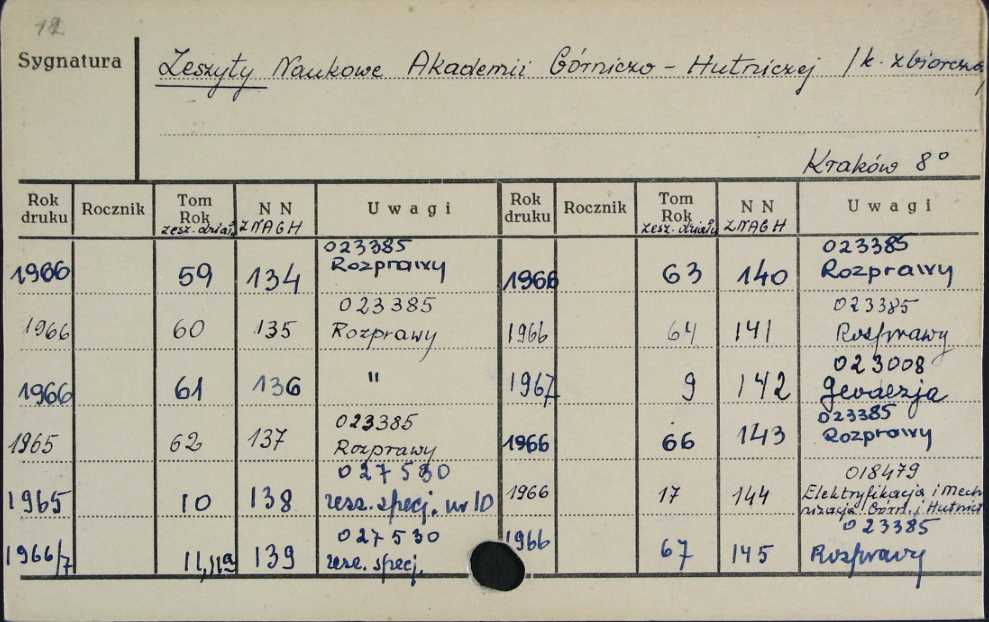 12
Sygnatura
Zeszyty Naukowe Akademii Górniczo - Hutniczej /k. zbiorcza/
Kraków 8°
Rok druku Rocznik Tom Rok zesz. działu N N ZNAGH Uwagi Rok druku Rocznik Tom Rok zesz. działu N N ZNAGH Uwagi
1966 59 134 023385 Rozprawy 1966 63 140 023385 Rozprawy
1966 60 135 023385 Rozprawy 1966 64 141 023385 Rozprawy
1966 61 136 " 1967 9 142 023008 Geodezja
1965 62 137 023385 Rozprawy 1966 66 143 023385 Rozprawy
1965 10 138 027530 zesz. specj. nr 10 1966 17 144 018479 Elektryfikacja i Mechanizacja Górn. i Hutnict
1966/7 11, 11a 139 027530 zesz. specj. 1966 67 145 023385 Rozprawy